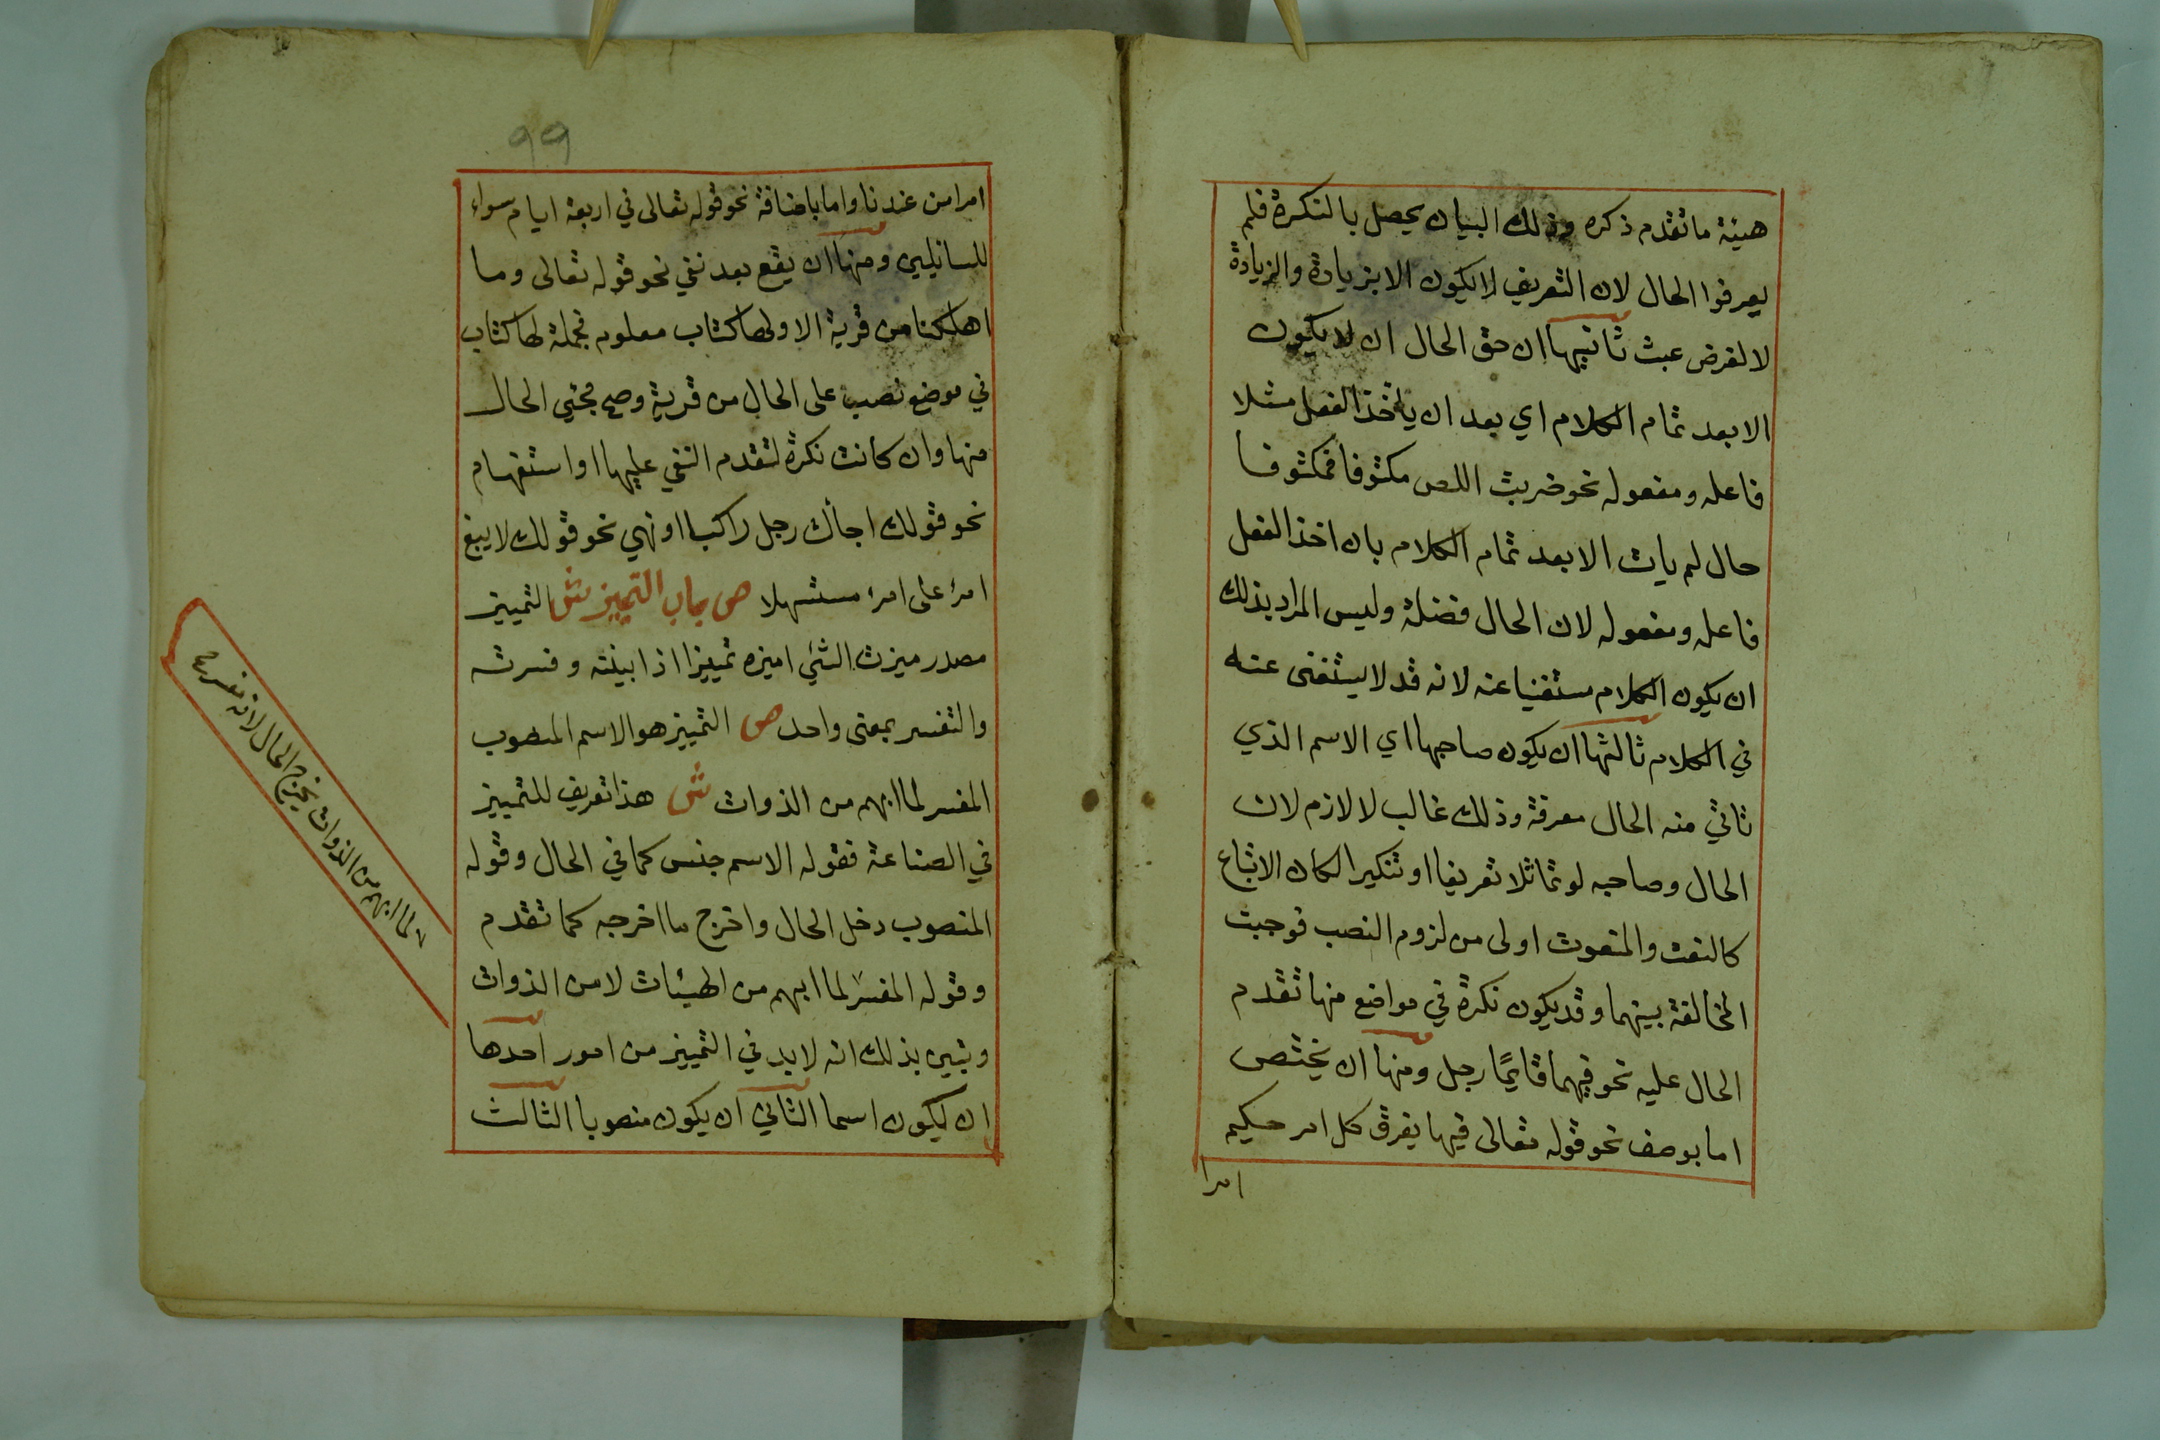 هيئة ما تقدم ذكره وذلك البيان يحصل بالنكرة فلم
يعرفوا الحال لان التعريف لا يكون الا بزيادة والزيادة
لا لغرض عبث ثانيها ان حق الحال ان لا يكون
الا بعد تمام الكلام اي بعد ان ياخذ الفعل مثلا
فاعله ومفعوله نحو ضربت اللص مكتوفا فمكتوفا
حال لم يات الا بعد تمام الكلام بان اخذ الفعل
فاعله ومفعوله لان الحال فضلة وليس المراد بذلك
ان يكون الكلام مستغنيا عنه لانه قد لا يستغنى عنه
في الكلام ثالثها ان يكون صاحبها اي الاسم الذي
تاتي منه الحال معرفة وذلك غالب لا لازم لان
الحال وصاحبه لو تماثلا تعريفا او تنكيرا لكان الاتباع
كالنعت والمنعوت اولى من لزوم النصب فوجبت
المخالفة بينهما وقد يكون نكرة في مواضع منها تقدم
الحال عليه نحو فيهما قايمًا رجل ومنها ان يختص
اما بوصف نحو قوله تعالى فيها يفرق كل امر حكيم
امرا
99
امرا من عندنا واما باضافة نحو قوله تعالى في اربعة ايام سواء
للسائلين ومنها ان يقع بعد نفي نحو قوله تعالى وما
اهلكنا من قرية الا ولها كتاب معلوم فجملة لها كتاب
في موضع نصب على الحال من قرية وصح مجئ الحال
منها وان كانت نكرة لتقدم النفي عليها او استفهام
نحو قولك اجاك رجل راكبا او نهي نحو قولك لا يبغ
امرء على امرء مستسهلا ص باب التمييز ش التمييز
مصدر ميزت الشئ اميزه تمييزا اذا بينته وفسرته
والتفسر بمعنى واحد ص التمييز هو الاسم المنصوب
المفسر لما ابهم من الذوات ش هذا تعريف للتمييز
في الصناعة فقوله الاسم جنس كما في الحال وقوله
المنصوب دخل الحال واخرج ما اخرجه كما تقدم
وقوله المفسر لما ابهم من الهيئات لا من الذوات
وتبين بذلك انه لا بد في التمييز من امور احدها
ان يكون اسما الثاني ان يكون منصوبا الثالث
لما ابهم من الذوات يخرج الحال لانه تفسر